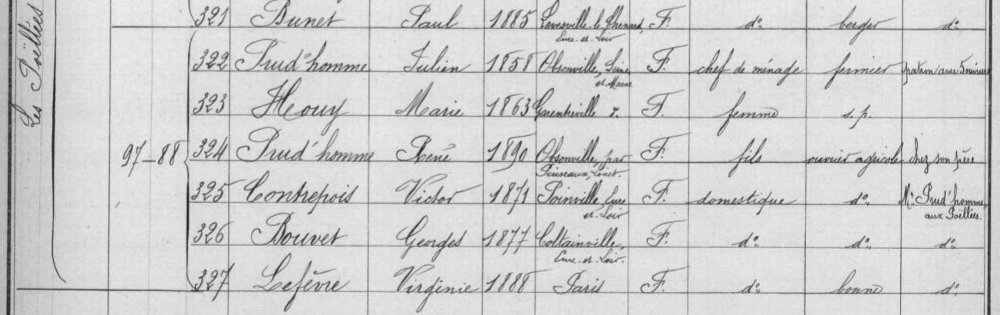 Les Poëllées
321 Bunet Paul 1885 Levesville la Chenard, Eure-et-Loir F. do berger do
322 Prud'homme Julien 1858 Obsonville, Seine et Marne F. chef de ménage fermier patron avec 5 ouvriers
323 Houy Marie 1863 Garentreville d. F. femme s.p.
97-88 324 Prud'homme René 1890 Obsonville, par Puiseaux, Loiret. F. fils ouvrier agricole chez son père
325 Contrepois Victor 1871 Poinville, Eure et Loir F. domestique do Mr Prud'homme, aux Poëllées.
326 Bouvet Georges 1877 Coltainville, Eure-et-Loir. F. do do do
327 Lefèvre Virginie 1888 Paris F. do bonne do